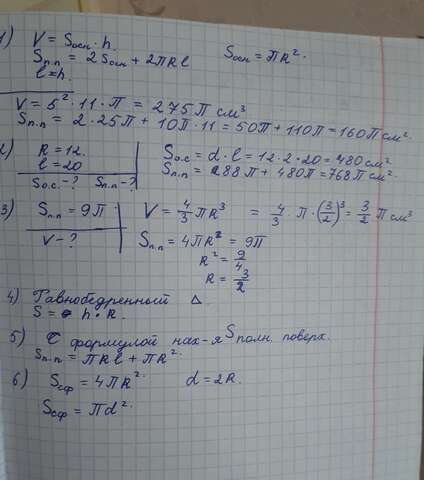 1) V = Sосн · h.
Sп.п = 2 Sосн + 2πRl Sосн = πR².
l = h.
V = 5² · 11 · π = 275π см³
Sп.п = 2 · 25π + 10π · 11 = 50π + 110π = 160π см².
2) R = 12. Sо.с = d · l = 12 · 2 · 20 = 480 см²
l = 20 Sп.п = 288π + 480π = 768π см².
Sо.с. - ? Sп.п - ?
3) Sп.п = 9π. V = 4/3 πR³ = 4/3 · π · (3/2)³ = 3/2 π см³
V - ? Sп.п = 4πR² = 9π
R² = 9/4
R = 3/2
4) Равнобедренный Δ.
S = h · R.
5) С формулой нах-я Sполн. поверх.
Sп.п = πRl + πR².
6) Sсф = 4πR². d = 2R.
Sсф = πd².